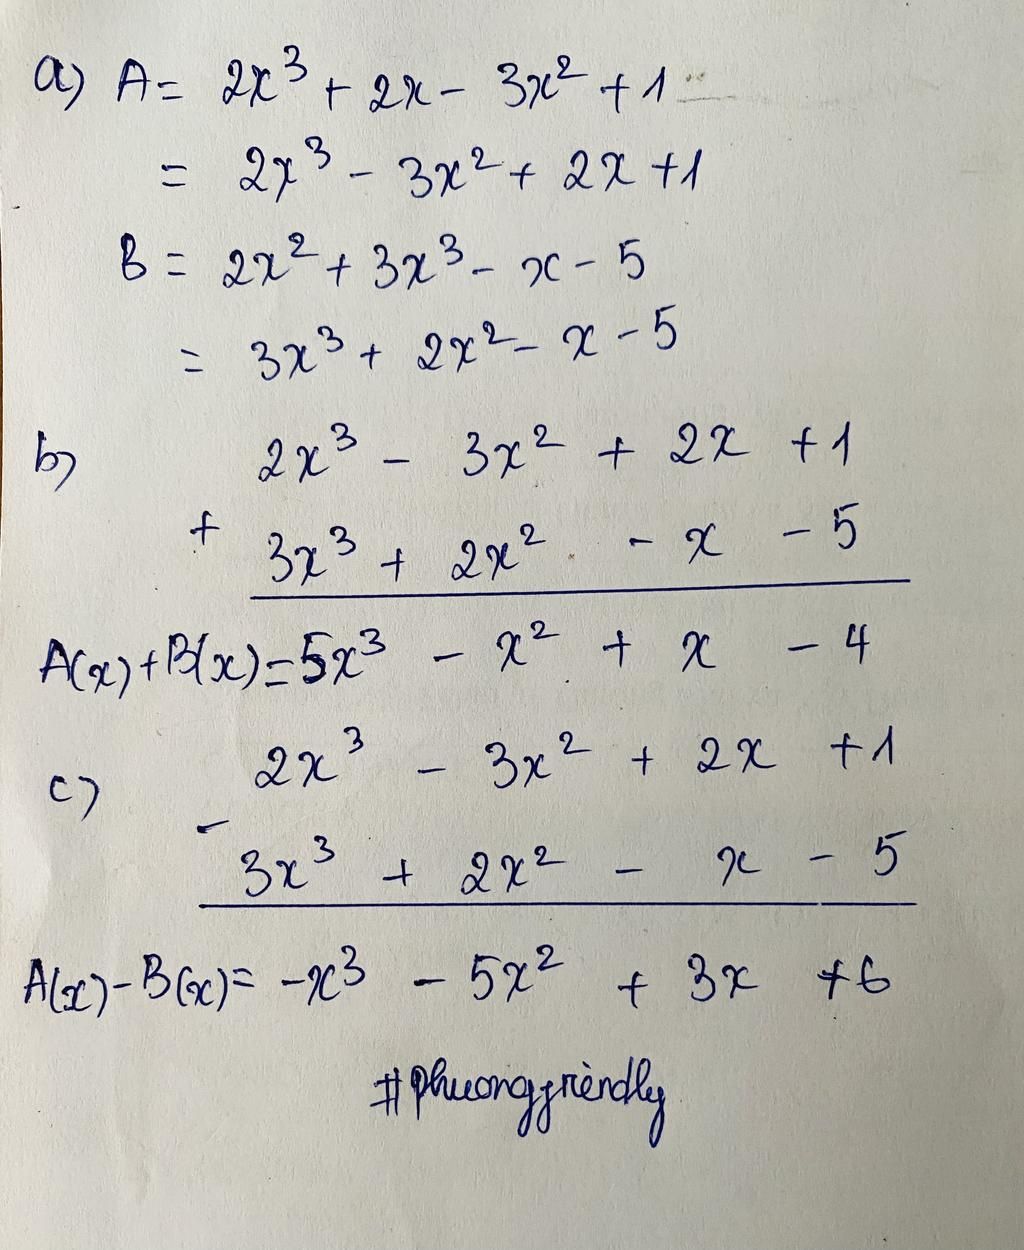 a) A = 2x³ + 2x - 3x² + 1
= 2x³ - 3x² + 2x + 1
B = 2x² + 3x³ - x - 5
= 3x³ + 2x² - x - 5
b) 2x³ - 3x² + 2x + 1
+ 3x³ + 2x² - x - 5
A(x) + B(x) = 5x³ - x² + x - 4
c) 2x³ - 3x² + 2x + 1
- 3x³ + 2x² - x - 5
A(x) - B(x) = -x³ - 5x² + 3x + 6
#phuongfriendly